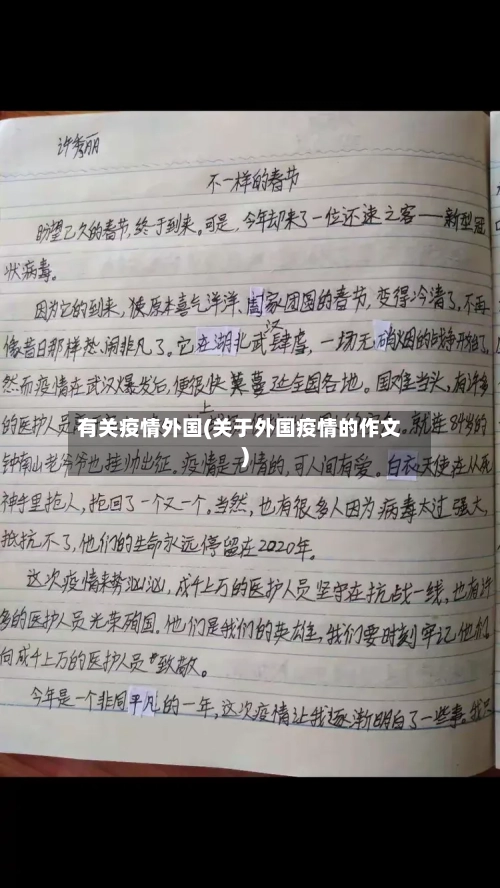 许秀丽
不一样的春节
盼望已久的春节,终于到来。可是,今年却来了一位不速之客——新型冠
状病毒。
因为它的到来,使原本喜气洋洋、阖家团圆的春节,变得冷清了,不再
像昔日那样热闹非凡了。它在湖北武汉肆虐,一场无硝烟的战争开始了。
然而疫情在武汉爆发后,便很快蔓延全国各地。国难当头,有许多
的医护人员
上
就连84岁的
有关疫情外国(关于外国疫情的作文
)
钟南山老爷爷也挂帅出征。疫情是无情的,可人间有爱。白衣天使在从死
神手里抢人,抢回了一个又一个。当然,也有很多人因为病毒太过强大,
抵抗不了,他们的生命永远停留在2020年。
这次疫情来势汹汹,成千上万的医护人员坚守在抗战一线,也有许
多的医护人员光荣殉国。他们是我们的英雄,我们要时刻牢记他们,
向成千上万的医护人员致敬。
今年是一个非同平凡的一年,这次疫情让我逐渐明白了一些事。我